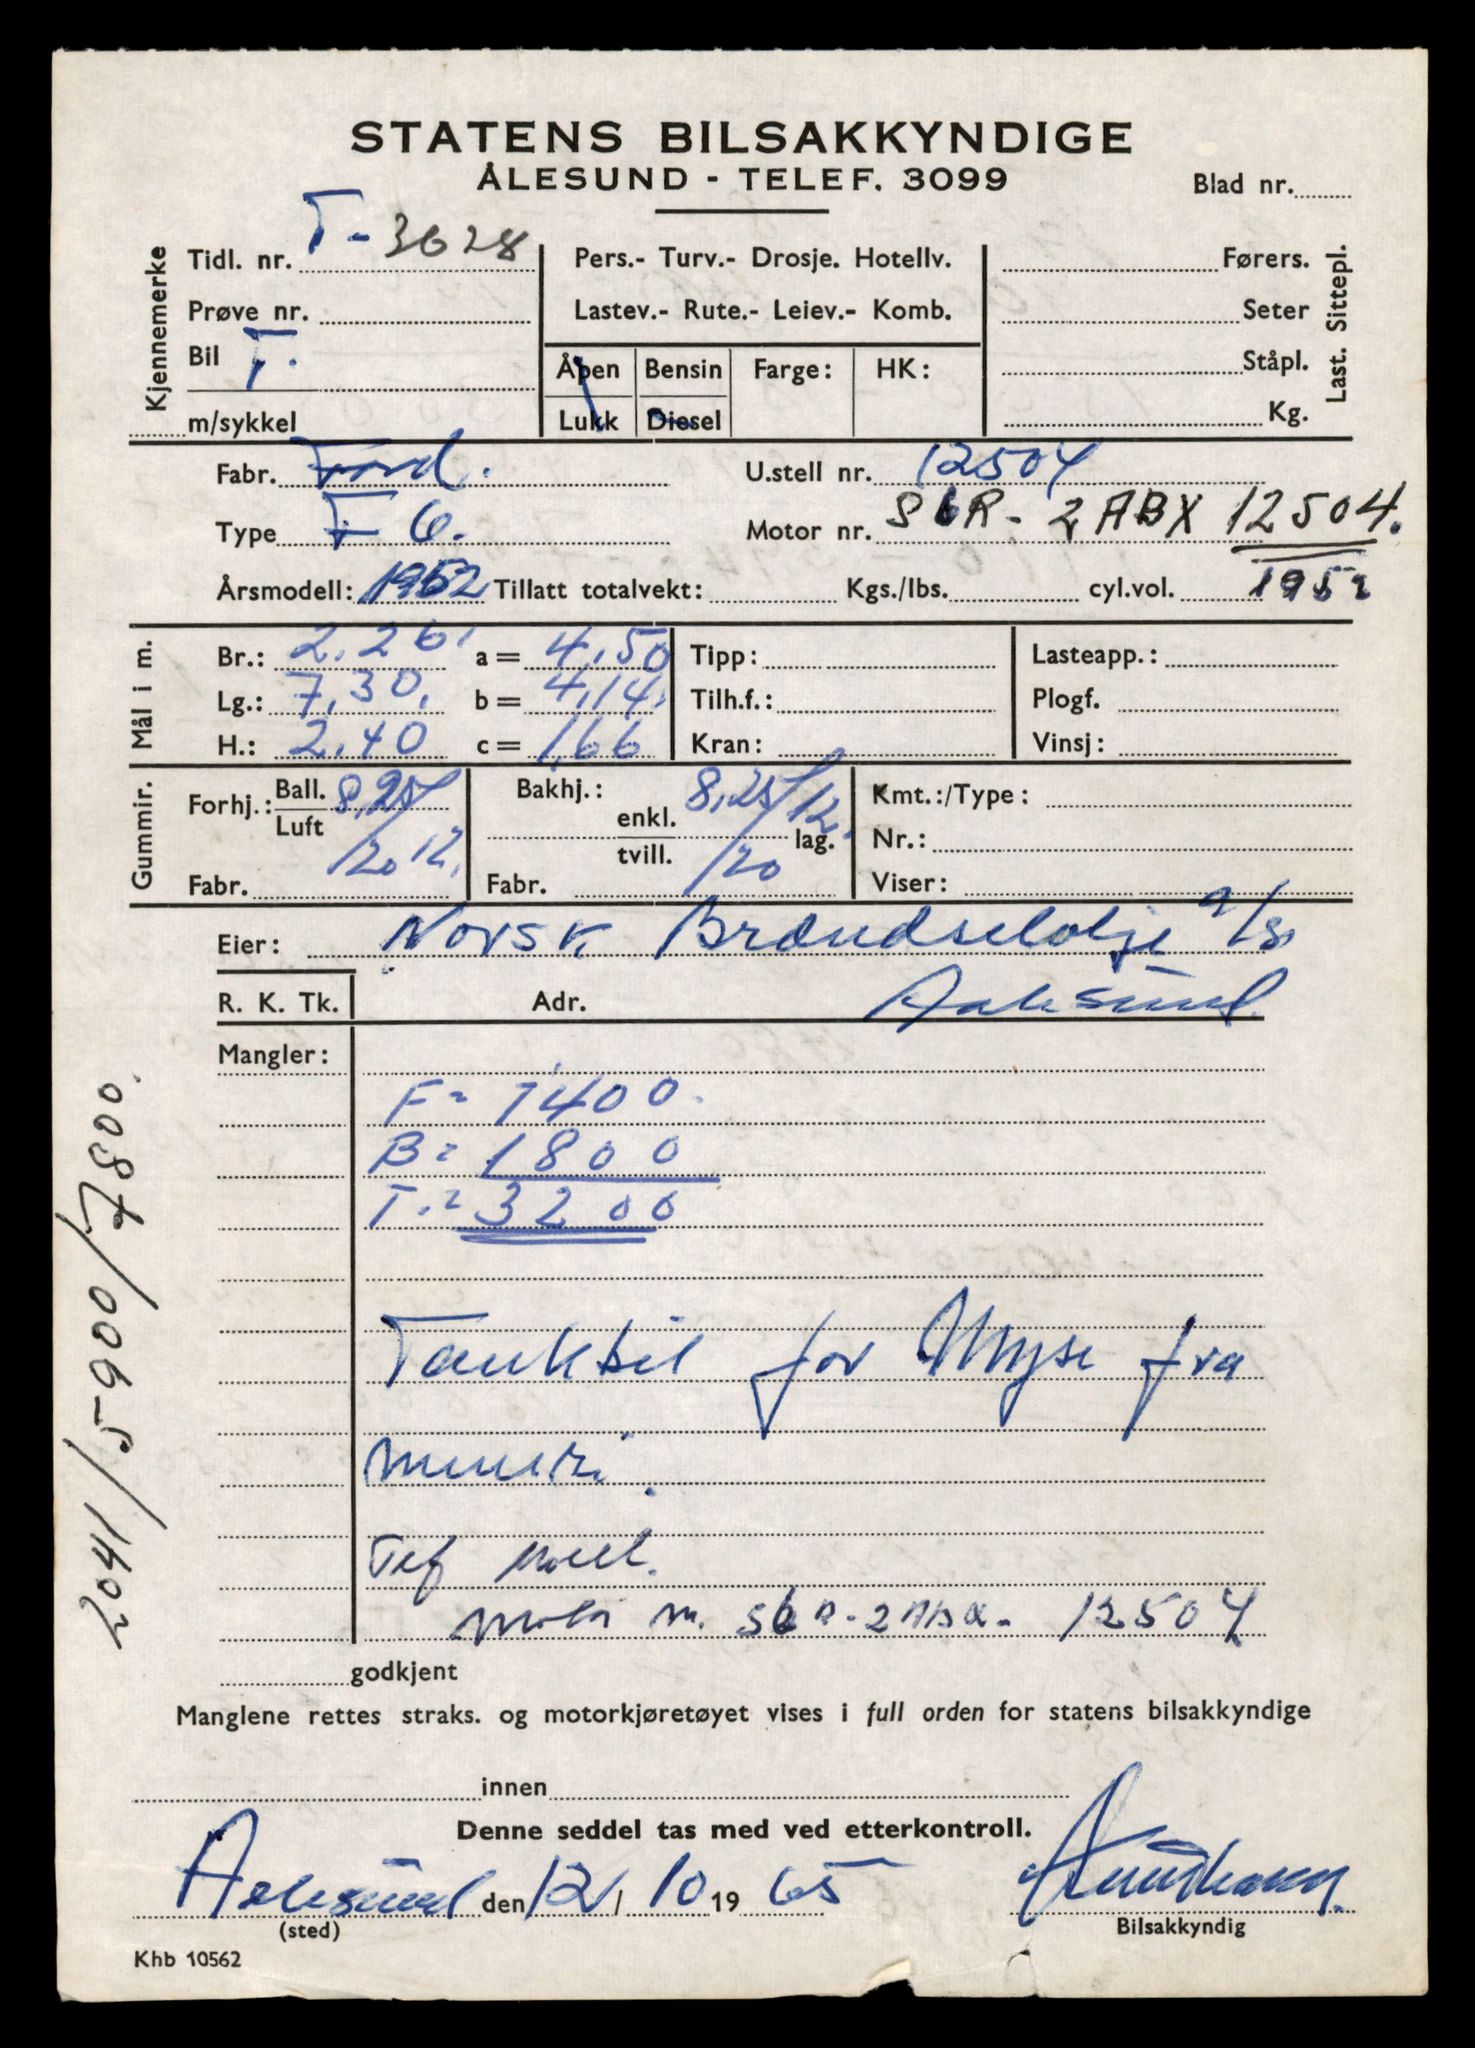 STATENS BILSAKKYNDIGE
ÅLESUND - TELEF. 3099
Blad nr.
Kjennemerke
Tidl. nr. T-3628
Prøve nr.
Bil T.
m/sykkel
Pers.- Turv.- Drosje. Hotellv.
Lastev.- Rute.- Leiev.- Komb.
Åpen Bensin Farge: HK:
Lukk Diesel
Førers.
Seter
Ståpl.
Kg.
Last. Sittepl.
Fabr. Ford. U.stell nr. 12504
Type F 6. Motor nr. S6R-2ABX 12504.
Årsmodell: 1952 Tillatt totalvekt: Kgs./lbs. cyl.vol. 1952
Mål i m.
Br.: 2.26. a = 4,50 Tipp: Lasteapp.:
Lg.: 7,30. b = 4,14. Tilh.f.: Plogf.
H.: 2.40 c = 1,66 Kran: Vinsj:
Gummir.
Forhj.: Ball. 8,25/
Luft
/20 12.
Fabr.
Bakhj.: 8,25/12.
enkl.
tvill. lag.
/20
Fabr.
Kmt.:/Type:
Nr.:
Viser:
Eier: Norsk Brændselolje a/s.
R. K. Tk. Adr. Aalesund.
Mangler:
F = 1400.
B = 1800
T. = 3200
Tankbil for Myse fra
Tef
12504
godkjent
Manglene rettes straks. og motorkjøretøyet vises i full orden for statens bilsakkyndige
innen
Denne seddel tas med ved etterkontroll.
Aalesund den 12/10 19 65
(sted) Bilsakkyndig
Khb 10562
2041/5900/7800.